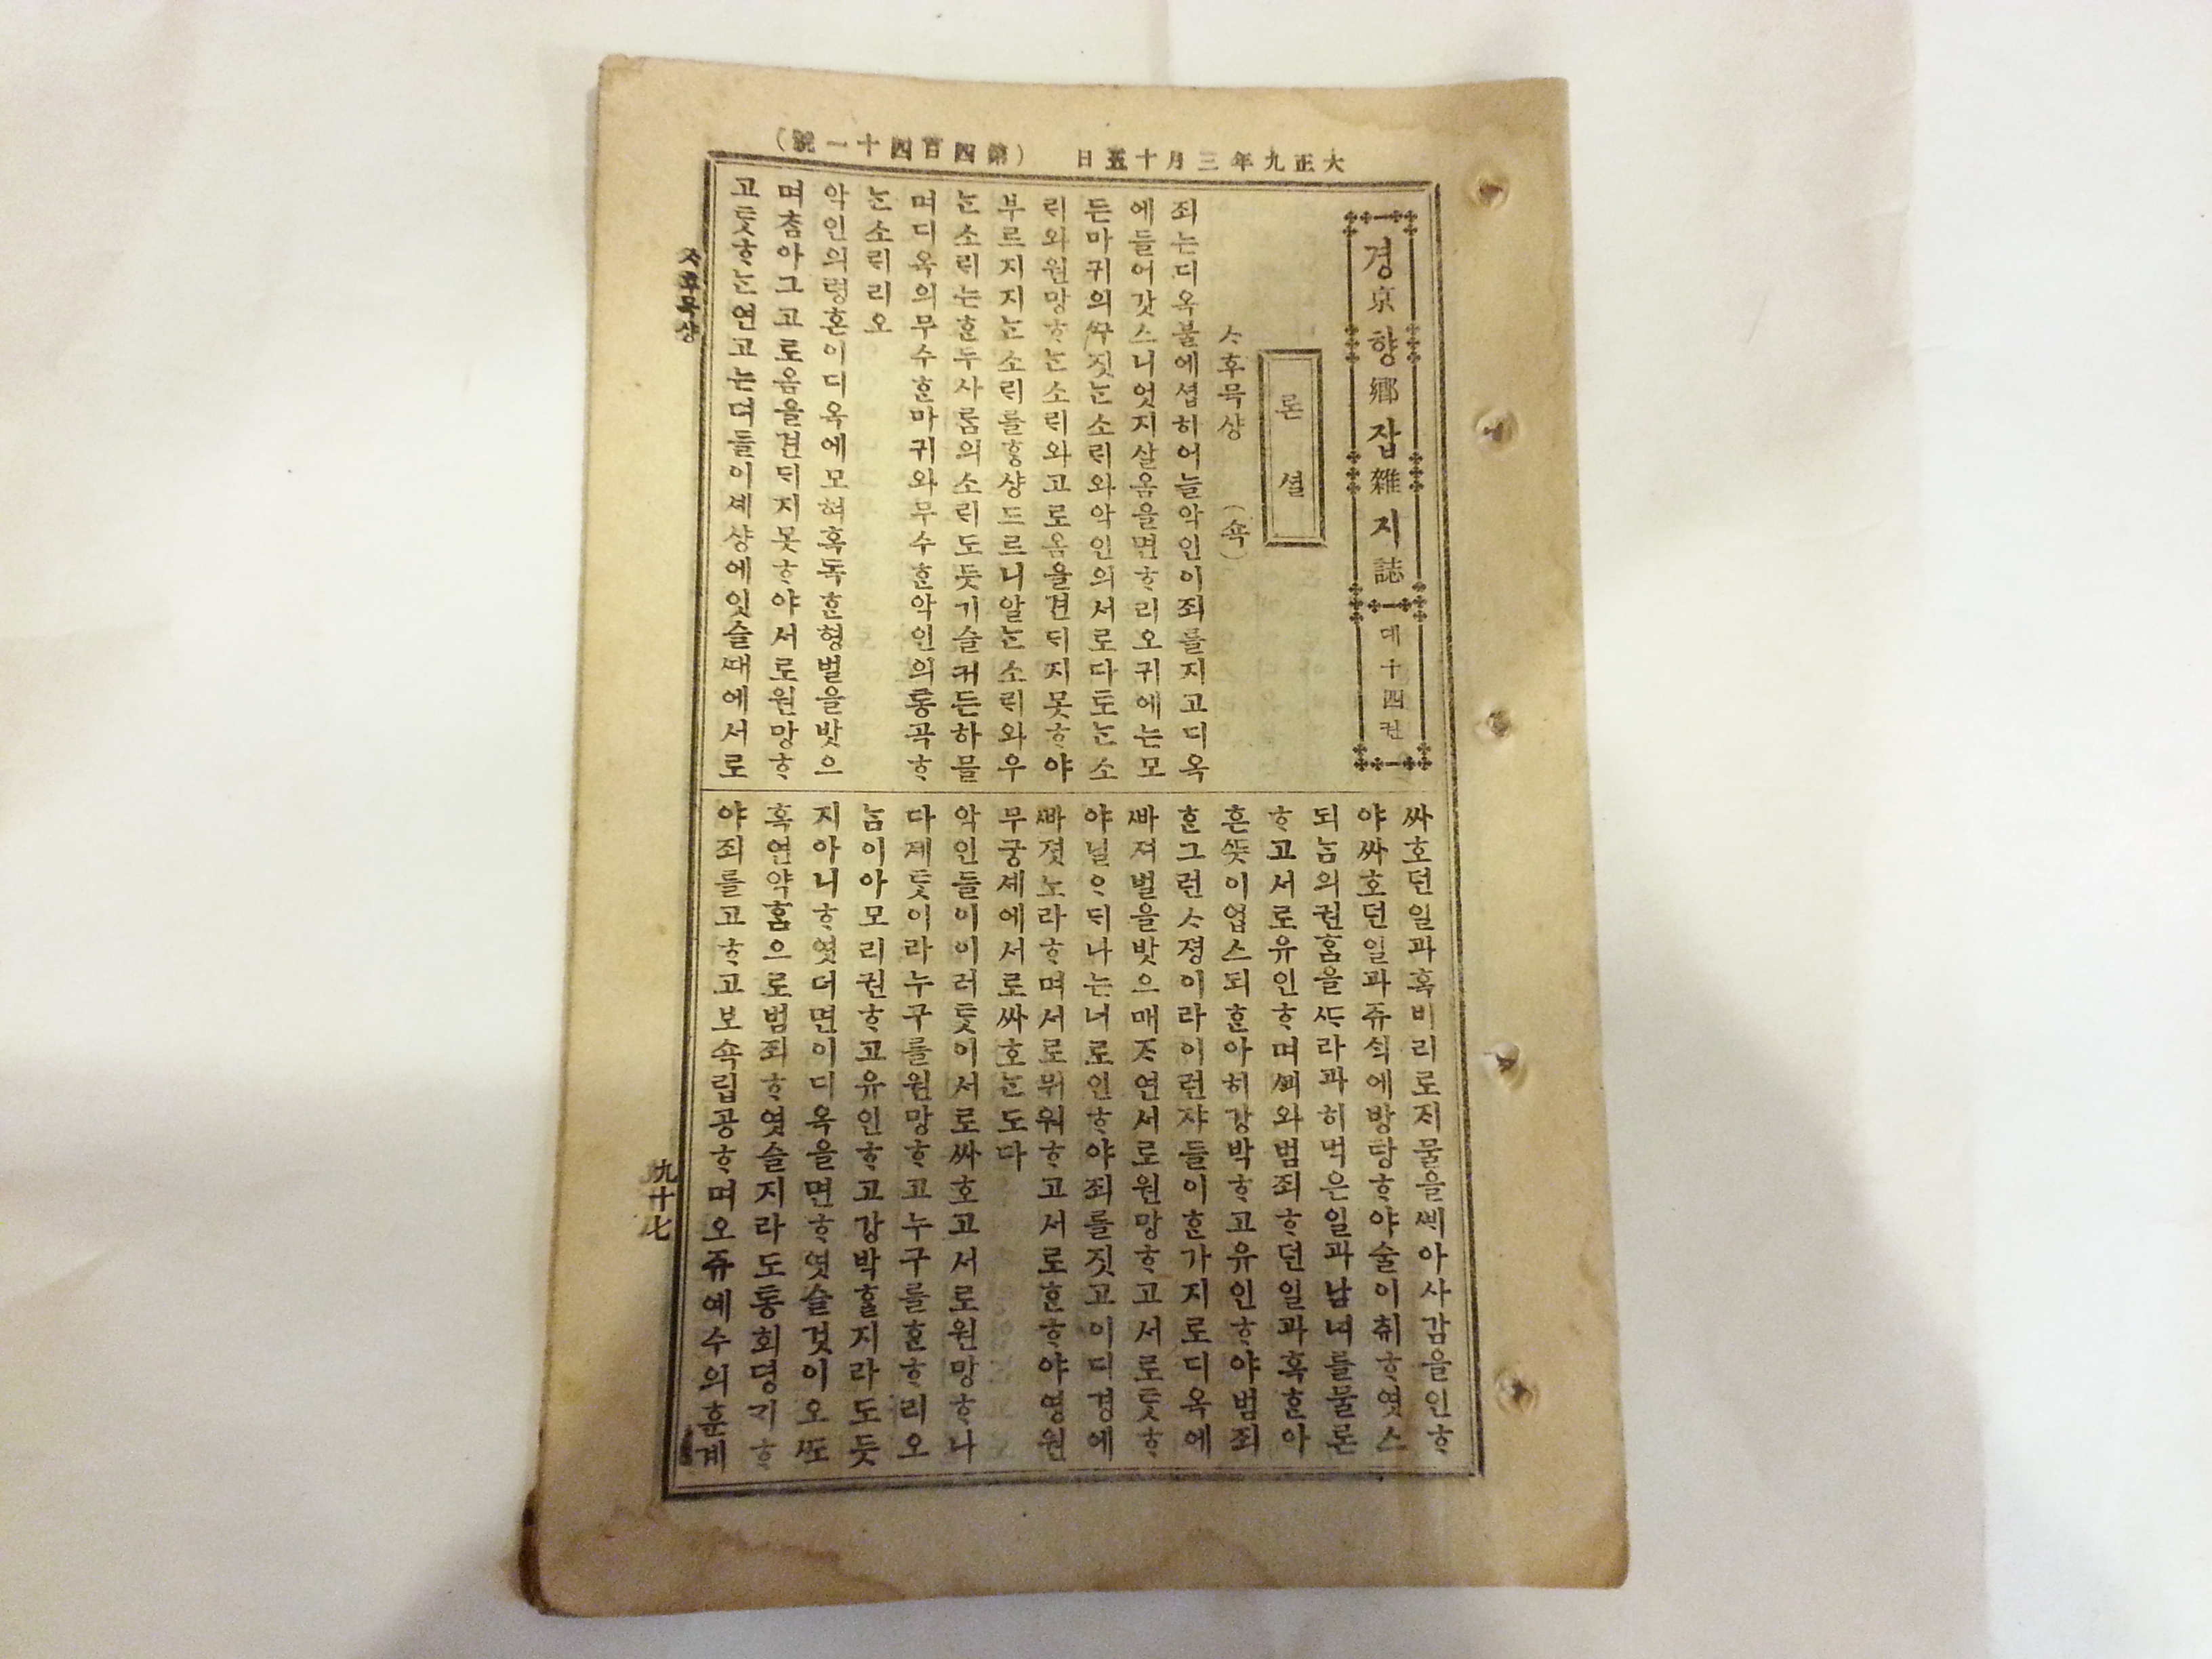 大正九年三月十五日
(第四百四十一號)
경京향鄕잡雜지誌
뎨十四권
론셜
ᄉᆞ후묵샹 (쇽)
죄는디옥불에셥히어늘악인이죄를지고디옥
에들어갓스니엇지살옴을면ᄒᆞ리오귀에는모
든마귀의ᄭᅮ짓ᄂᆞᆫ소ᄅᆡ와악인의서로다토ᄂᆞᆫ소
ᄅᆡ와원망ᄒᆞᄂᆞᆫ소ᄅᆡ와고로옴을견ᄃᆡ지못ᄒᆞ야
부르지지ᄂᆞᆫ소ᄅᆡ를ᄒᆞᆼ샹드르니알ᄂᆞᆫ소ᄅᆡ와우
ᄂᆞᆫ소ᄅᆡ는ᄒᆞᆫ두사ᄅᆞᆷ의소ᄅᆡ도듯기슬커든하믈
며디옥의무수ᄒᆞᆫ마귀와무수ᄒᆞᆫ악인의통곡ᄒᆞ
ᄂᆞᆫ소ᄅᆡ리오
악인의령혼이디옥에모혀혹독ᄒᆞᆫ형벌을밧으
며ᄎᆞᆷ아그고로옴을견ᄃᆡ지못ᄒᆞ야서로원망ᄒᆞ
고듯ᄒᆞᄂᆞᆫ연고는뎌들이셰샹에잇슬ᄯᅢ에서로
싸호던일과혹비리로ᄌᆡ물을ᄲᅢ아사감을인ᄒᆞ
야싸호던일과쥬ᄉᆡᆨ에방탕ᄒᆞ야술이취ᄒᆞ엿스
되ᄂᆞᆷ의권ᄒᆞᆷ을ᄯᆞ라과히먹은일과남녀를물론
ᄒᆞ고서로유인ᄒᆞ며ᄭᅬ와범죄ᄒᆞ던일과혹ᄒᆞᆫ아
흔ᄯᅳᆺ이업스되ᄒᆞᆫ아히강박ᄒᆞ고유인ᄒᆞ야범죄
ᄒᆞᆫ그런ᄉᆞ졍이라이런쟈들이ᄒᆞᆫ가지로디옥에
ᄲᅡ져벌을밧으매ᄌᆞ연서로원망ᄒᆞ고서로듯ᄒᆞ
야닐ᄋᆞᄃᆡ나는너로인ᄒᆞ야죄를짓고이디경에
ᄲᅡ졋노라ᄒᆞ며서로뮈워ᄒᆞ고서로ᄒᆞᆫᄒᆞ야영원
무궁셰에서로싸호ᄂᆞᆫ도다
악인들이이러틋이서로싸호고서로원망ᄒᆞ나
다졔듯이라누구를원망ᄒᆞ고누구를ᄒᆞᆫᄒᆞ리오
ᄂᆞᆷ이아모리권ᄒᆞ고유인ᄒᆞ고강박ᄒᆞᆯ지라도듯
지아니ᄒᆞ엿더면이디옥을면ᄒᆞ엿슬것이오ᄯᅩ
혹연약ᄒᆞᆷ으로범죄ᄒᆞ엿슬지라도통회뎡ᄀᆡᄒᆞ
야죄를고ᄒᆞ고보쇽립공ᄒᆞ며오쥬예수의훈계
ᄉᆞ후묵샹
九十七